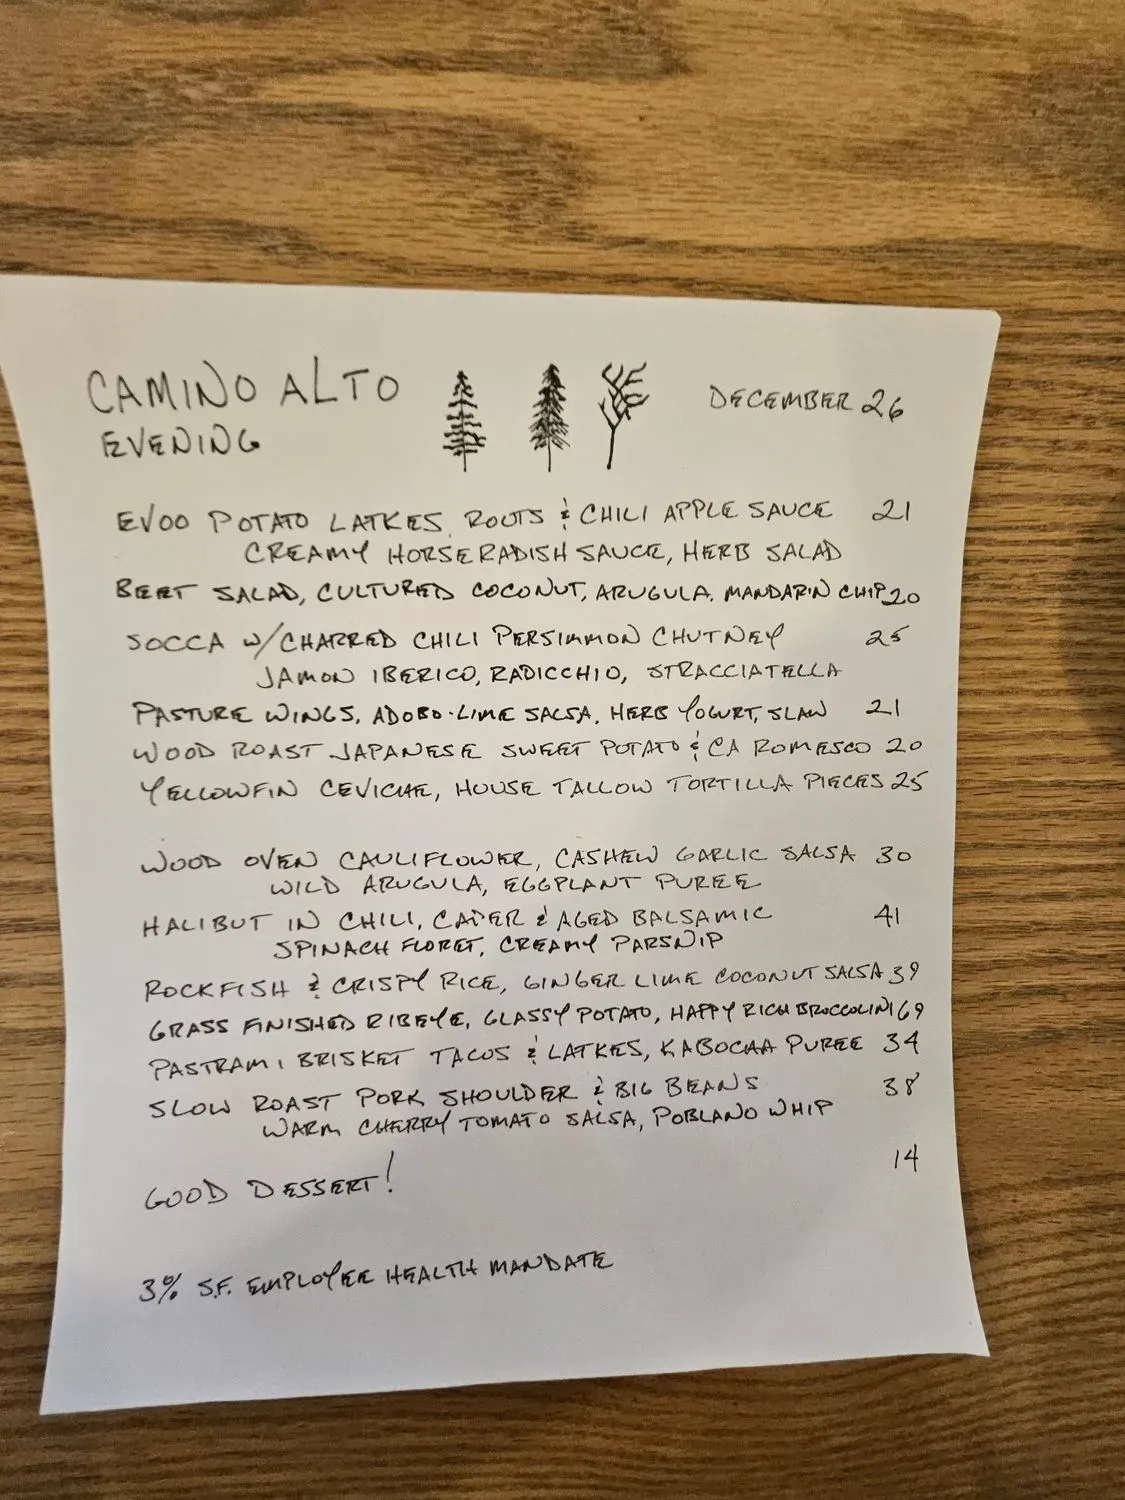 CAMINO ALTO
EVENING
DECEMBER 26
EVOO POTATO LATKES, ROOTS & CHILI APPLE SAUCE 21
CREAMY HORSERADISH SAUCE, HERB SALAD
BEET SALAD, CULTURED COCONUT, ARUGULA, MANDARIN CHIP 20
SOCCA W/CHARRED CHILI PERSIMMON CHUTNEY 25
JAMON IBERICO, RADICCHIO, STRACCIATELLA
PASTURE WINGS, ADOBO-LIME SALSA, HERB YOGURT, SLAW 21
WOOD ROAST JAPANESE SWEET POTATO & CA ROMESCO 20
YELLOWFIN CEVICHE, HOUSE TALLOW TORTILLA PIECES 25
WOOD OVEN CAULIFLOWER, CASHEW GARLIC SALSA 30
WILD ARUGULA, EGGPLANT PUREE
HALIBUT IN CHILI, CAPER & AGED BALSAMIC 41
SPINACH FLORET, CREAMY PARSNIP
ROCKFISH & CRISPY RICE, GINGER LIME COCONUT SALSA 39
GRASS FINISHED RIBEYE, GLASSY POTATO, HAPPY RICH BROCCOLINI 69
PASTRAMI BRISKET TACOS & LATKES, KABOCHA PUREE 34
SLOW ROAST PORK SHOULDER & BIG BEANS 38
WARM CHERRY TOMATO SALSA, POBLANO WHIP
GOOD DESSERT! 14
3% S.F. EMPLOYEE HEALTH MANDATE